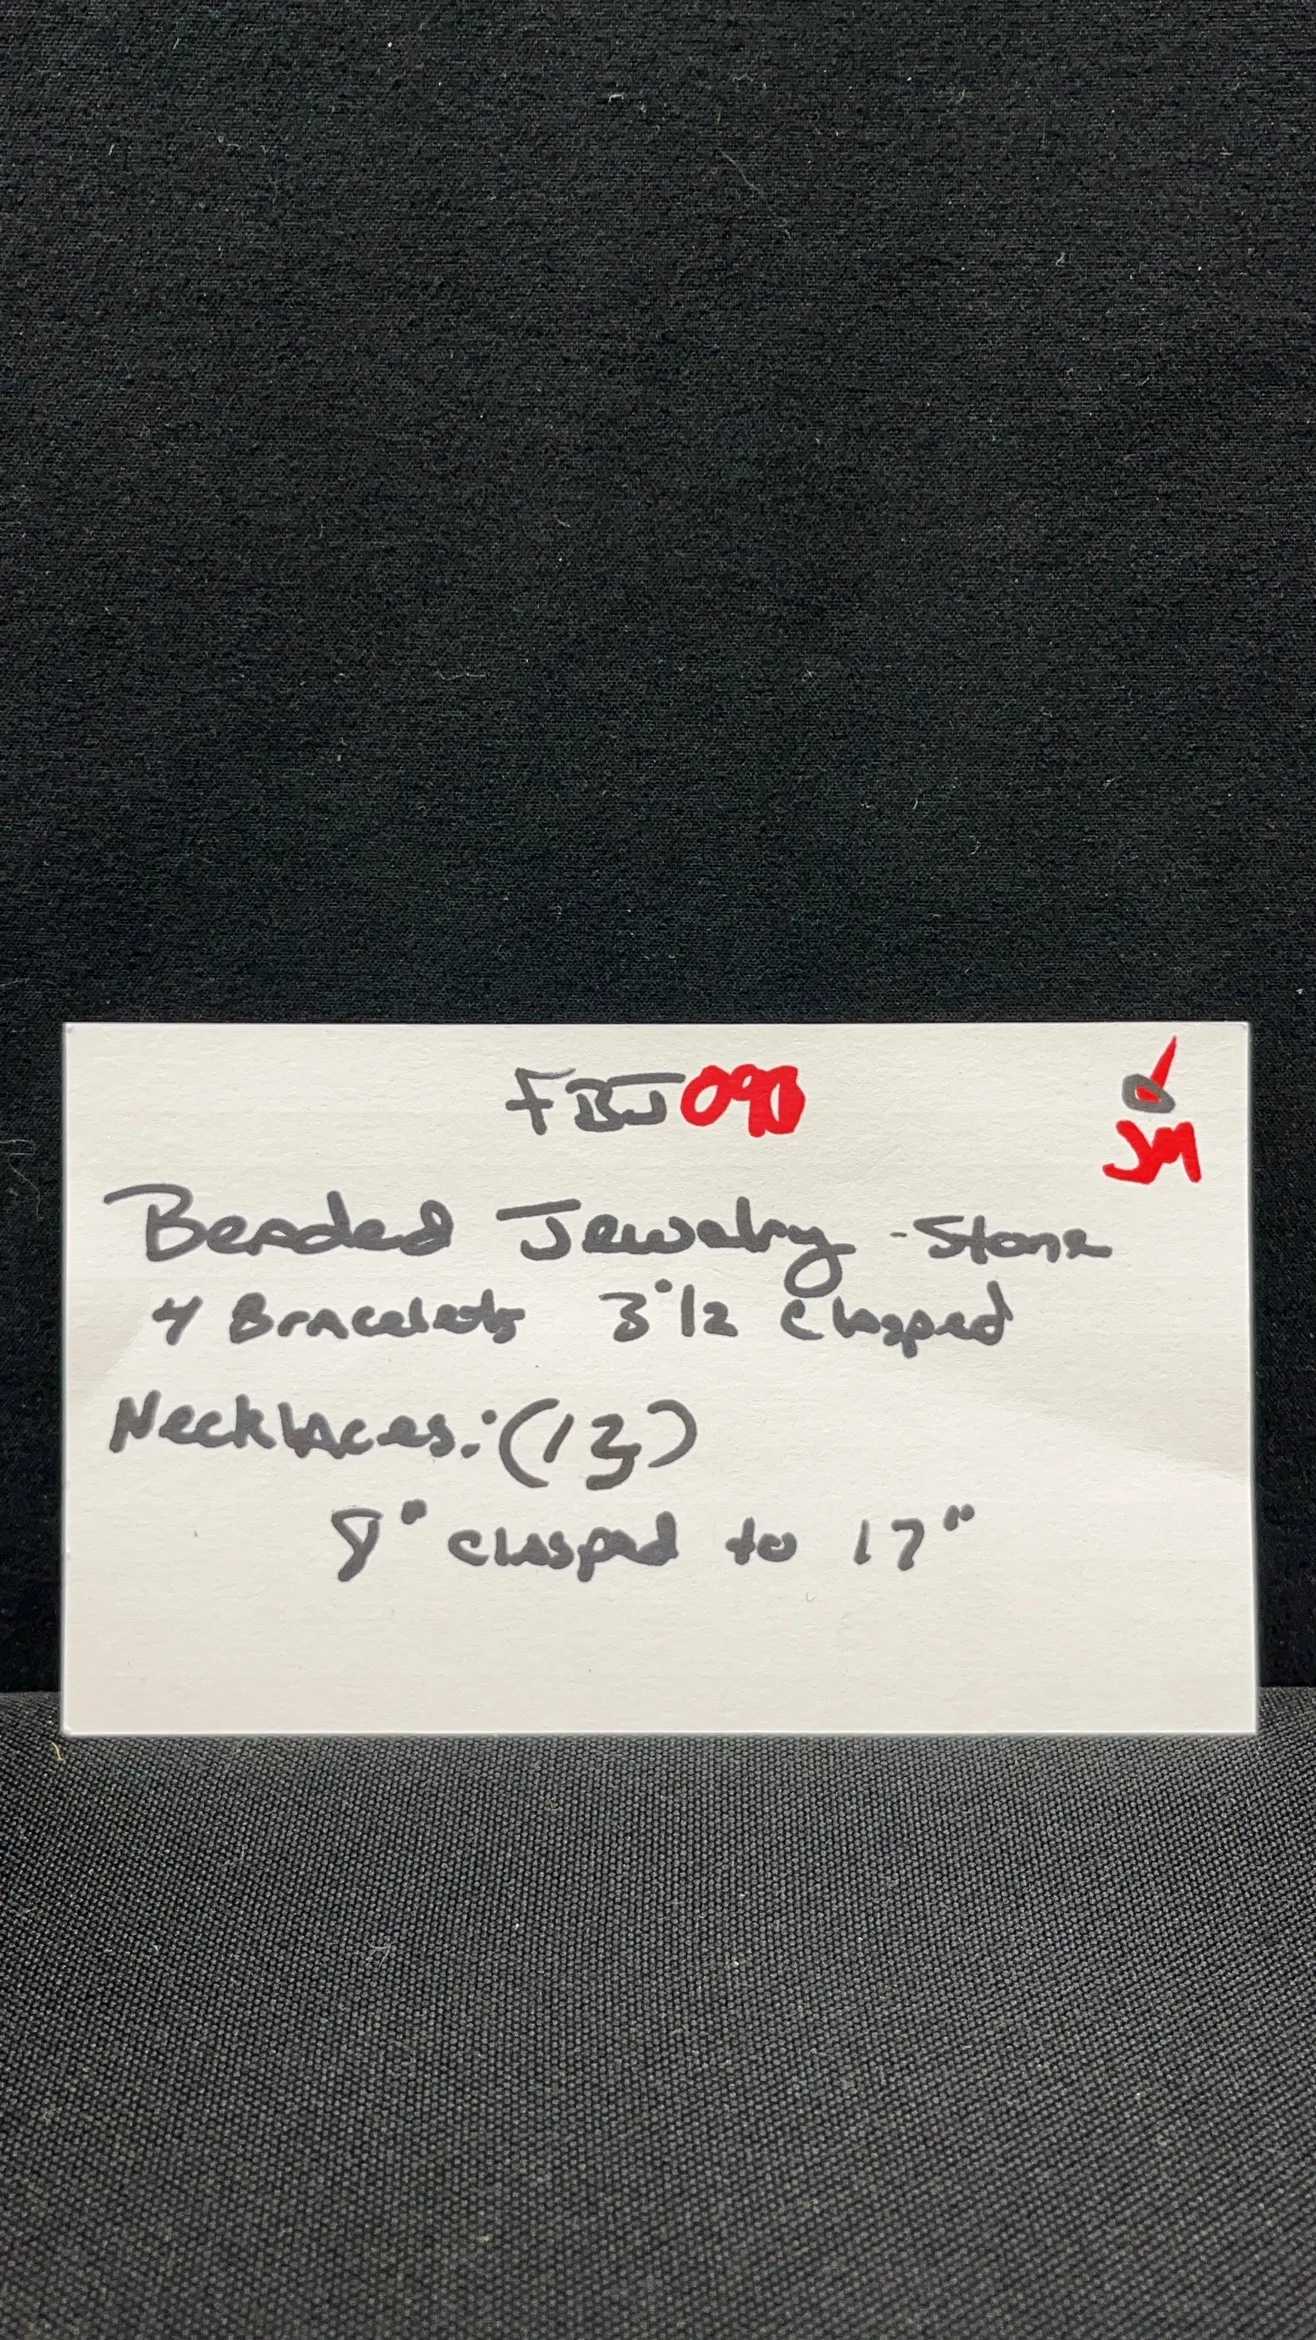 FBJ090
JM
Beaded Jewelry - Stone
4 Bracelets 3"1/2 Clasped
Necklaces: (13)
8" clasped to 17"